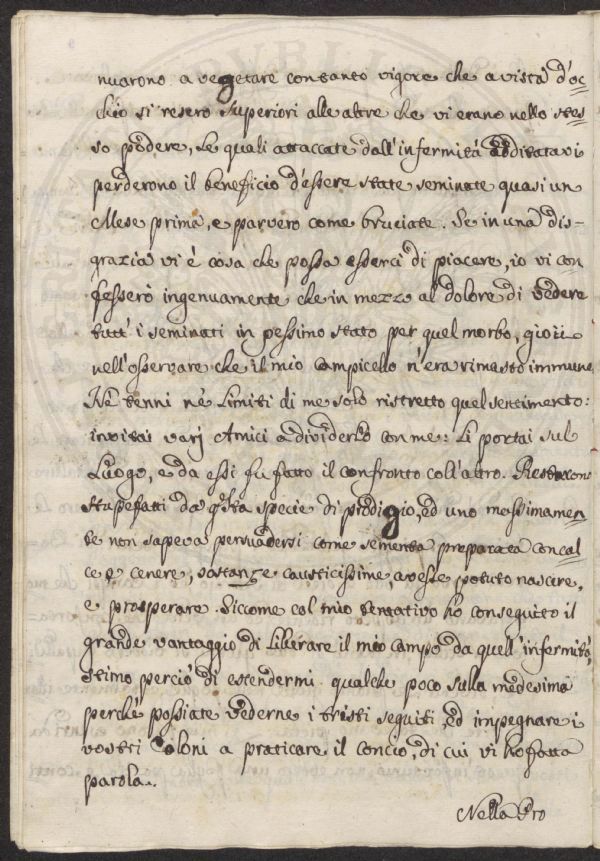 nuarono a vegetare con tanto vigore che a vista d'oc=
chio si resero superiori alle altre che vi erano nello stes=
so podere, Le quali attaccate dall'infermità additatavi
perderono il beneficio d'essere state seminate quasi un
Mese prima, e parvero come bruciate. Se in una dis-
grazia vi è cosa che possa esserci di piacere, io vi con
fesserò ingenuamente che in mezzo al dolore di vedere
tutt'i seminati in pessimo stato per quel morbo, gioii
nell'osservare che il mio campicello n'era rimasto immune
Nè tenni nè Limiti di me solo ristretto quel sentimento:
invitai varj Amici a dividerlo con me: Li portai sul
Luogo, e da essi fu fatto il confronto coll'altro. Restarono
stupefatti da qsta specie di prodigio, ed uno massimamen=
te non sapeva persuadersi come sementa preparata con cal=
ce e cenere, sostanze causticissime, avesse potuto nascere,
e prosperare. Siccome col mio tentativo ho conseguito il
grande vantaggio di Liberare il mio campo da quell'infermità,
stimo perciò di estendermi qualche poco sulla medesima
perchè possiate vederne i tristi seguiti, ed impegnare i
vostri Coloni a praticare il concio, di cui vi ho fatta
parola.
Nella Pro